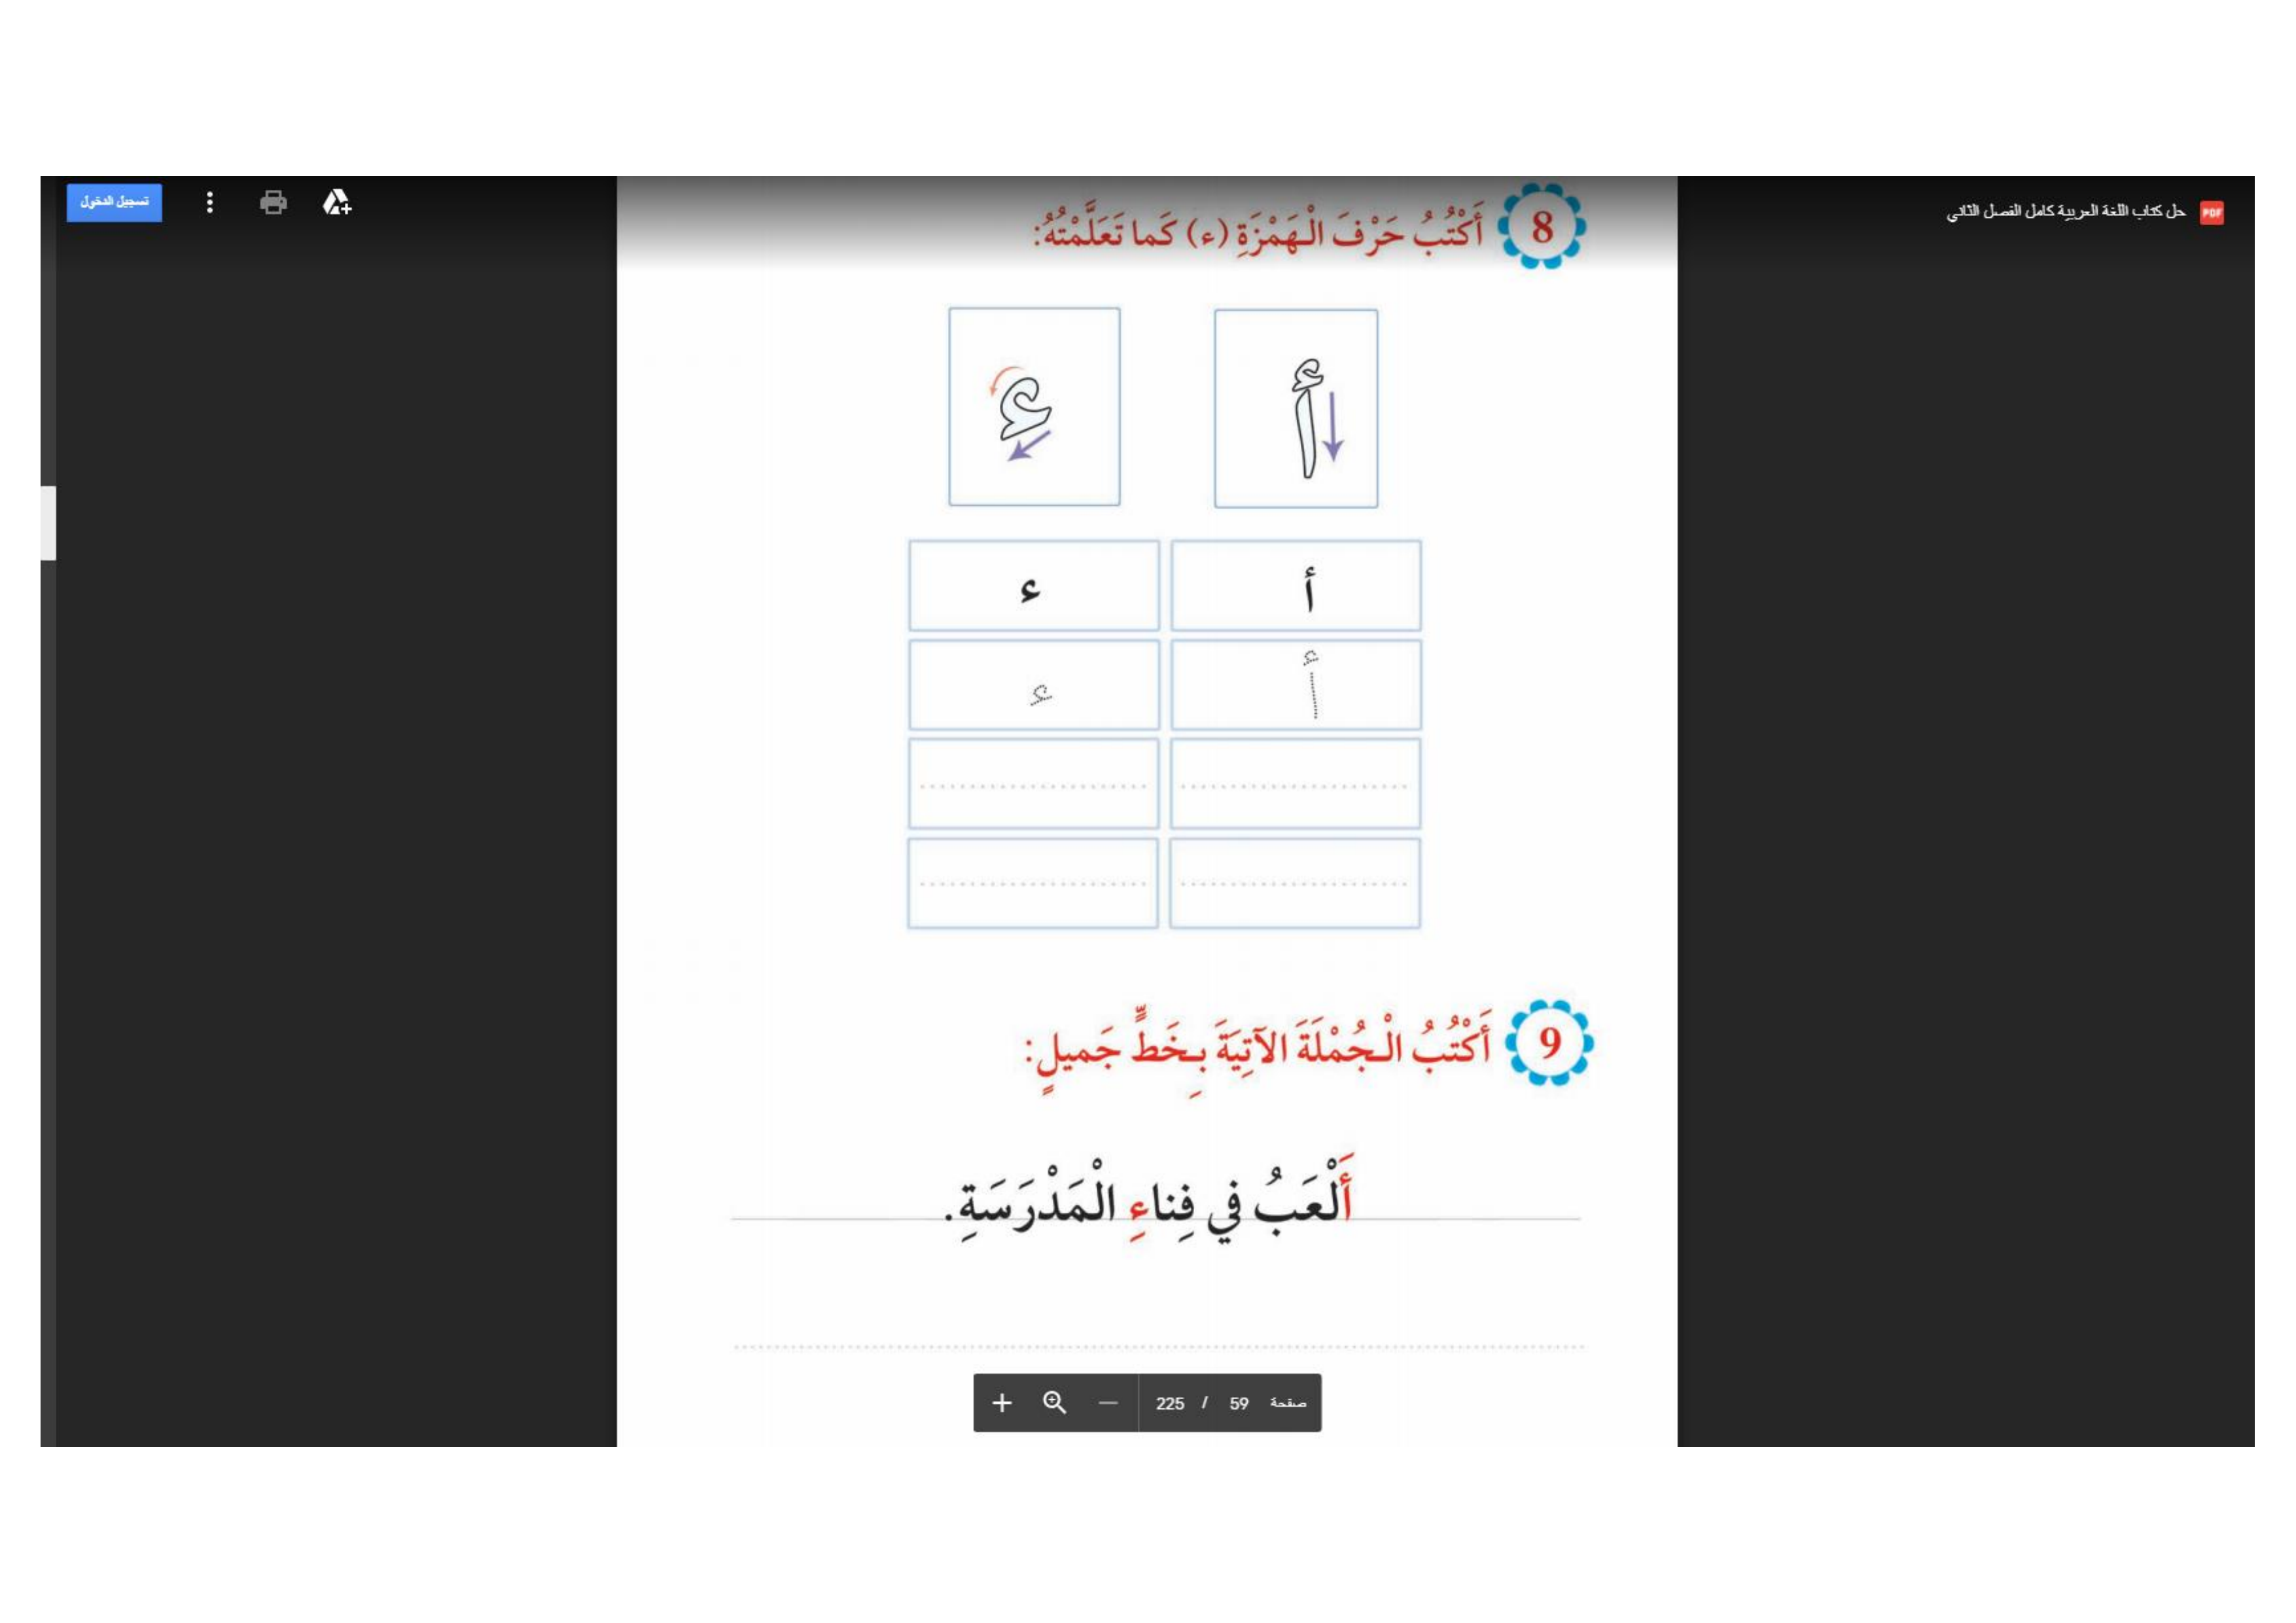 حل كتاب اللغة العربية كامل الفصل الثاني
PDF
تسجيل الدخول
8 أَكْتُبُ حَرْفَ الْهَمْزَةِ (ء) كَما تَعَلَّمْتُهُ:
أ ء
أ ء
أ ء
9 أَكْتُبُ الْجُمْلَةَ الآتِيَةَ بِخَطٍّ جَميلٍ:
أَلْعَبُ في فِناءِ الْمَدْرَسَةِ.
صفحة 59 / 225